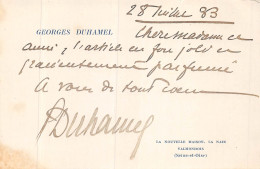 28 juillet 33
GEORGES DUHAMEL
Chère madame et
amie, l'article est fort joli et
gracieusement parfumé
A vous de tout cœur
GDuhamel
LA NOUVELLE MAISON, LA NAZE
VALMONDOIS
(Seine-et-Oise)